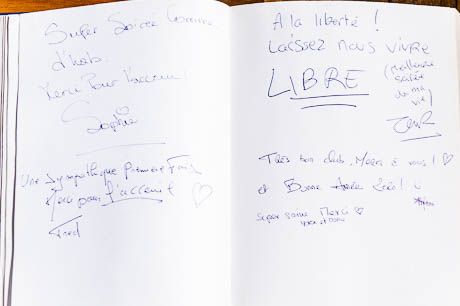 Super Soirée Comme
d'hab.
Merci Pour l'accueil !
Sophie
Une sympathique première fois
Merci pour l'accueil
Fred
A la liberté !
Laissez nous vivre
LIBRE
(meilleure
soirée
de ma
vie)
Très bon club. Merci à vous !
et Bonne Année !
Super soirée Merci